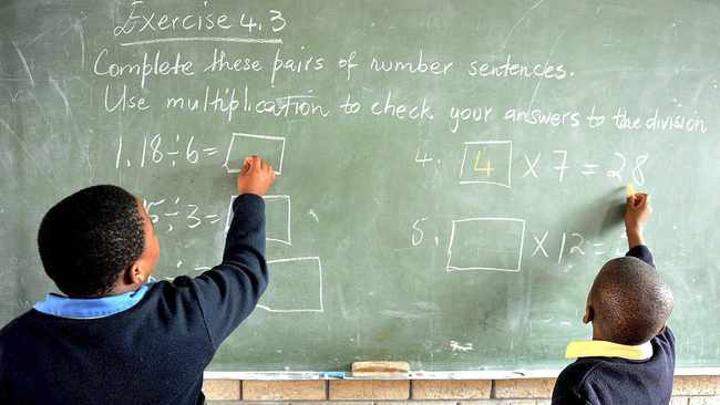 Exercise 4.3
Complete these pairs of number sentences.
Use multiplication to check your answers to the division
1. 18 ÷ 6 =
5 ÷ 3 =
4. 4 × 7 = 28
5. × 12 =